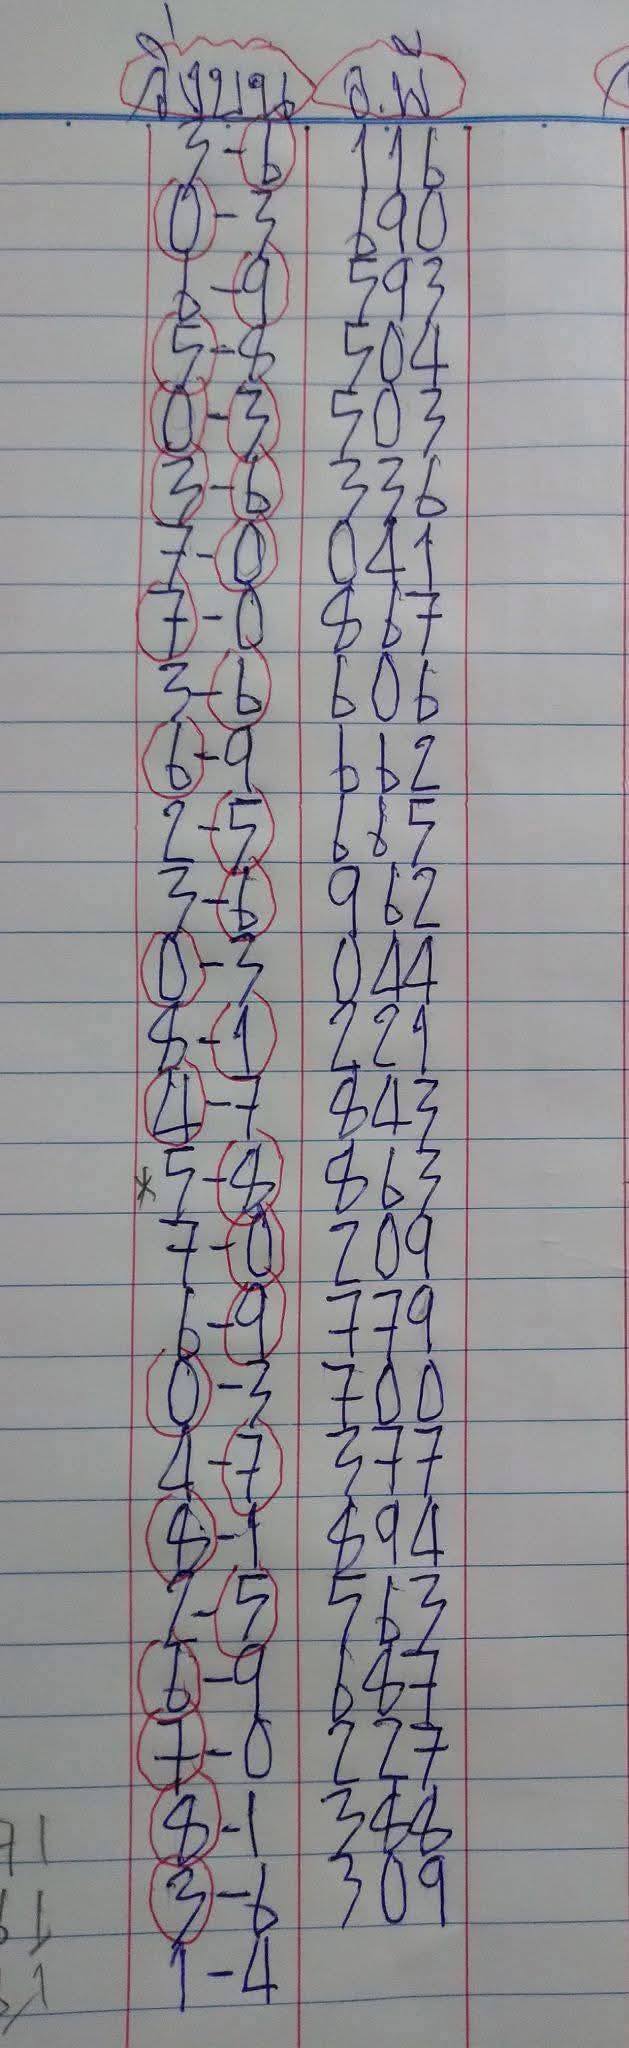 วิ่งบน อ.พี
3-6 116
0-3 690
6-9 593
5-8 504
0-3 503
3-6 336
7-0 041
7-0 867
3-6 606
6-9 662
2-5 685
3-6 962
0-3 044
8-1 221
4-7 843
* 5-8 863
7-0 209
6-9 779
0-3 700
4-7 377
8-1 894
2-5 563
6-9 687
7-0 227
8-1 388
3-6 309
1-4